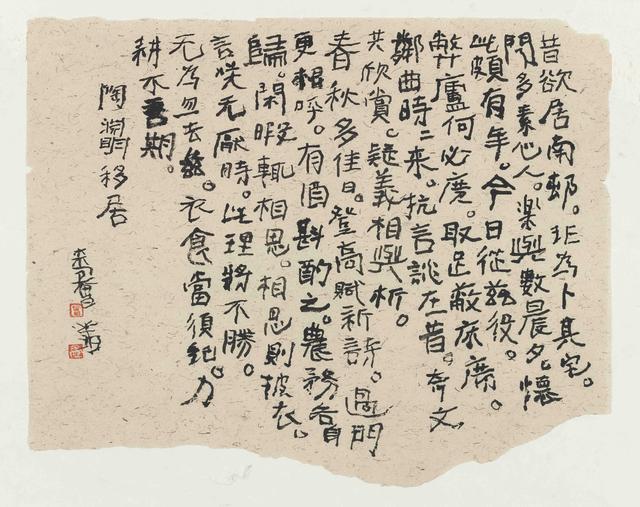 昔欲居南邨。非為卜其宅。
聞多素心人。楽與數晨夕。懷
此頗有年。今日從茲役。
弊廬何必廣。取足蔽床席。
鄰曲時二来。抗言談在昔。奇文
共欣賞。疑義相與析。
春秋多佳日。登高賦新詩。過門
更相呼。有酒斟酌之。農務各自
歸。閑暇輒相思。相思則披衣。
言笑无厭時。此理將不勝。
无為忽去茲。衣食當須紀。力
耕不吾期。
陶淵明移居